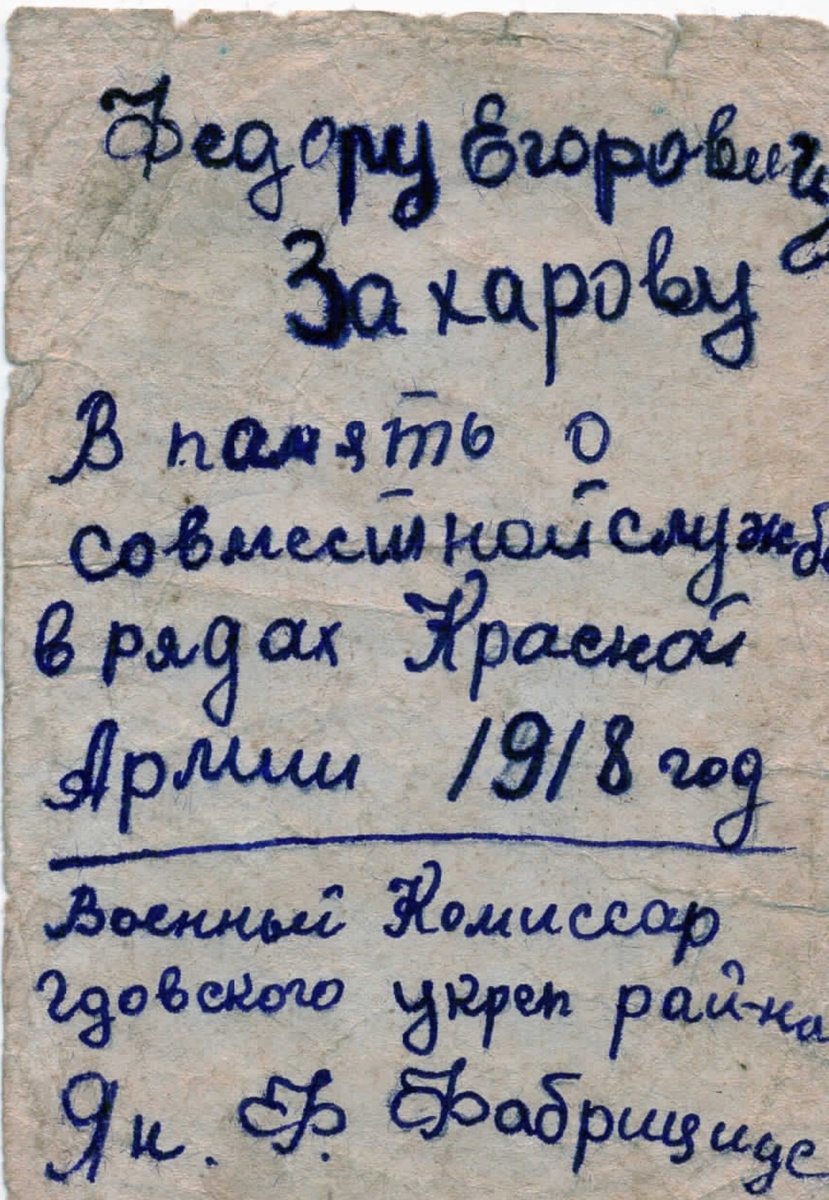 Федору Егоровичу
Захарову
В память о
совместной службе
в рядах Красной
Армии 1918 год
Военный Комиссар
Гдовского укреп рай-на
Ян. Ф. Фабрициус